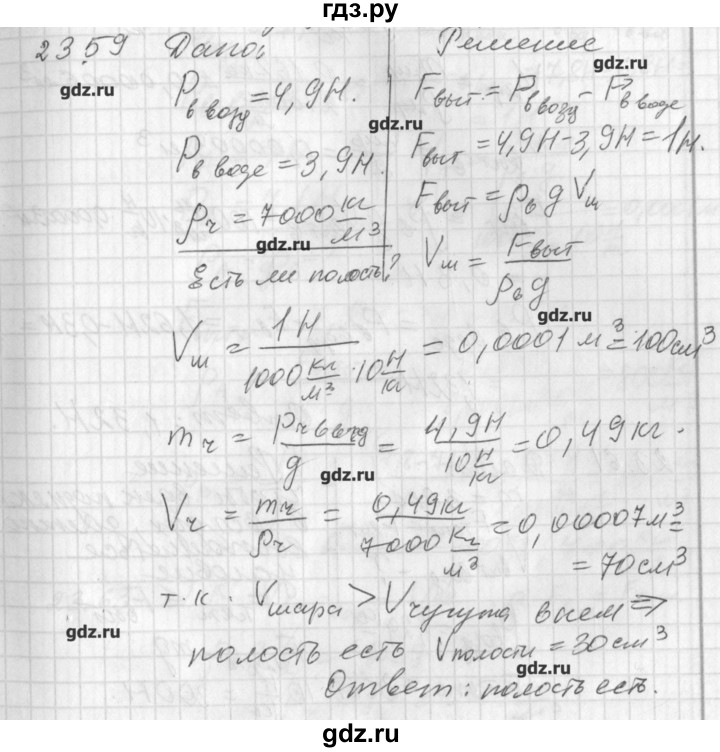 гдз.ру
23.59 Дано: Решение
gdz.ru
P в возд = 4,9Н. Fвыт. = P в возд - P в воде
gdz.ru
P в воде = 3,9Н. Fвыт = 4,9Н - 3,9Н = 1Н.
ρч = 7000 кг/м³ Fвыт = ρв g Vш
gdz.ru
Есть ли полость? Vш = Fвыт / ρв g
gdz.ru
Vш = 1Н / 1000 кг/м³ · 10 Н/кг = 0,0001 м³ = 100 см³
mч = Pч в возд / g = 4,9Н / 10 Н/кг = 0,49 кг.
gdz.ru
Vч = mч / ρч = 0,49кг / 7000 кг/м³ = 0,00007 м³ =
= 70 см³
т.к. Vшара > Vчугуна в нем ⇒
gdz.ru
полость есть Vполости = 30 см³
gdz.ru
Ответ: полость есть.
gdz.ru